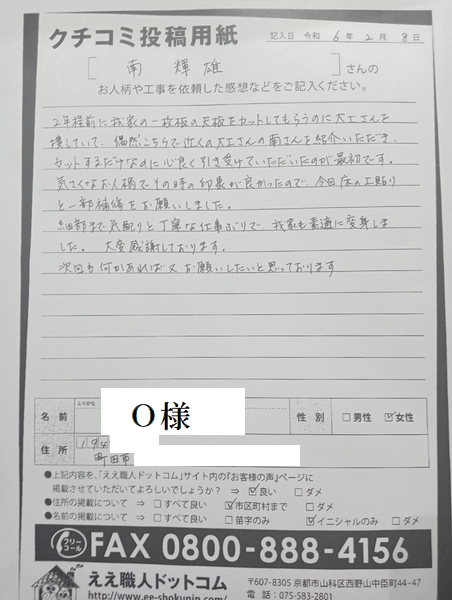 クチコミ投稿用紙
記入日 令和 6年 2月 8日
[ 南 輝雄 ] さんの
お人柄や工事を依頼した感想などをご記入ください。
2年程前に我家の一枚板の天板をカットしてもらうのに大工さんを
捜していて、偶然こちらで近くの大工さんの南さんを紹介いただき、
カットするだけなのに心良く引き受けていただいたのが最初です。
気さくなお人柄でその時の印象が良かったので、今回床の上貼り
と一部補修をお願いしました。
細部まで気配りと丁寧な仕事ぶりで、我家も素適に変身しま
した。大変感謝しております。
次回も何かあれば又お願いしたいと思っております
ふりがな
名前 O様 性別 □男性 ☑女性
住所 194
町田市
●上記内容を、「ええ職人ドットコム」サイト内の『お客様の声』ページに
掲載させていただいてよろしいでしょうか？ ⇒ ☑良い □ダメ
●住所の掲載について ⇒ □すべて良い ☑市区町村まで □ダメ
●名前の掲載について ⇒ □すべて良い □苗字のみ ☑イニシャルのみ □ダメ
フリーコール FAX 0800-888-4156
ええ職人ドットコム
http://www.ee-shokunin.com/
〒607-8305 京都市山科区西野山中臣町44-47
電話：075-583-2801